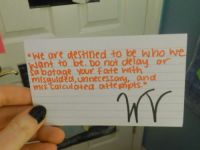 "We are destined to be who we
want to be. Do not delay or
sabotage your fate with
misguided, unnecessary, and
miscalculated attempts."